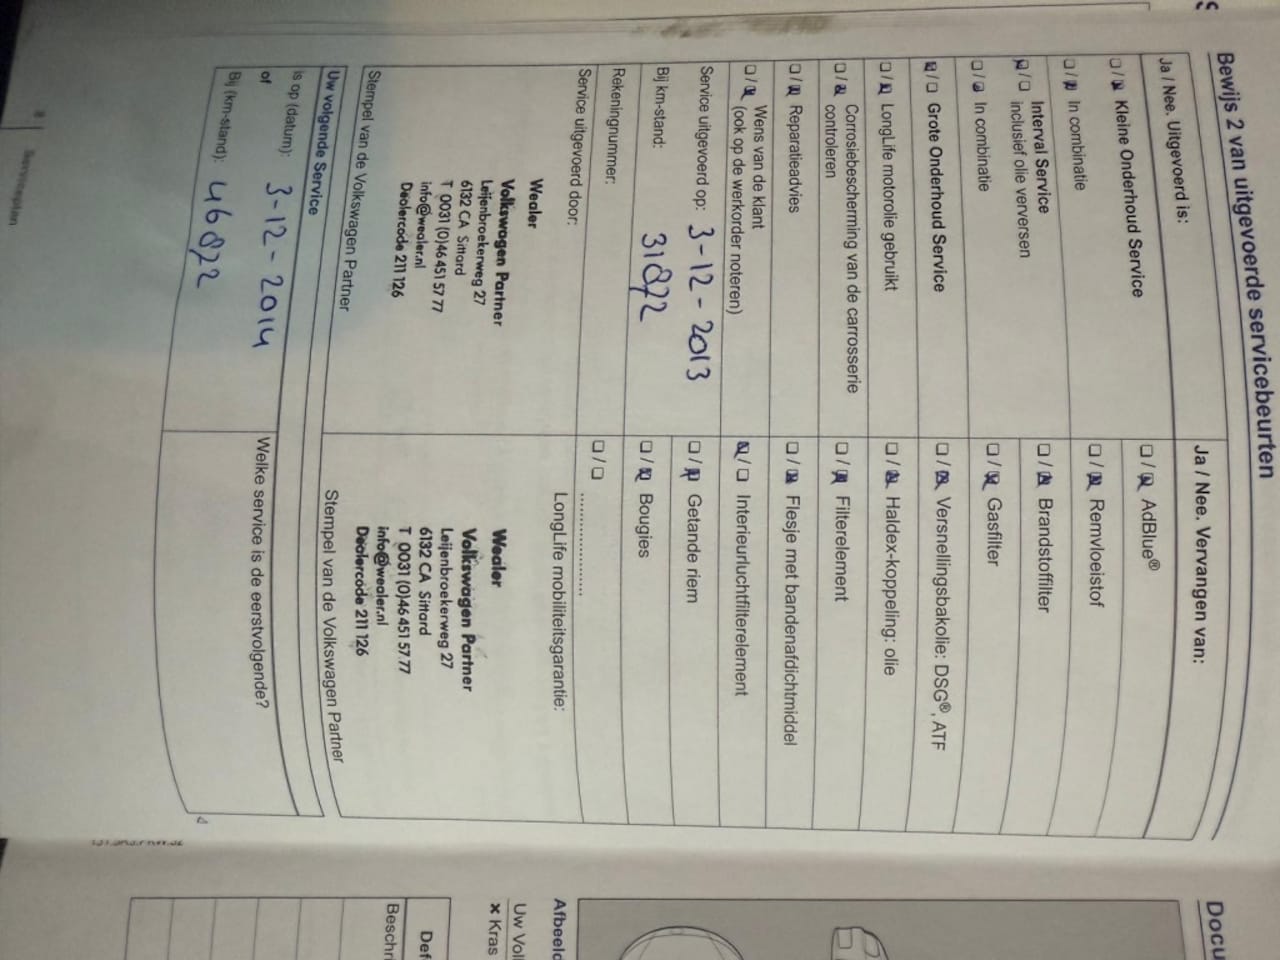 Bewijs 2 van uitgevoerde servicebeurten
Ja / Nee. Uitgevoerd is:
☐ / ☒ Kleine Onderhoud Service
☐ / ☒ In combinatie
☒ / ☐ Interval Service
inclusief olie verversen
☐ / ☒ In combinatie
☒ / ☐ Grote Onderhoud Service
☐ / ☒ LongLife motorolie gebruikt
☐ / ☒ Corrosiebescherming van de carrosserie
controleren
☐ / ☒ Reparatieadvies
☐ / ☒ Wens van de klant
(ook op de werkorder noteren)
Service uitgevoerd op: 3-12-2013
Bij km-stand: 31872
Rekeningnummer:
Service uitgevoerd door:
Wealer
Volkswagen Partner
Leijenbroekerweg 27
6132 CA Sittard
T 0031 (0)46 451 57 77
info@wealer.nl
Dealercode 211 126
Stempel van de Volkswagen Partner
Ja / Nee. Vervangen van:
☐ / ☒ AdBlue®
☐ / ☒ Remvloeistof
☐ / ☒ Brandstoffilter
☐ / ☒ Gasfilter
☐ / ☒ Versnellingsbakolie: DSG®, ATF
☐ / ☒ Haldex-koppeling: olie
☐ / ☒ Filterelement
☐ / ☒ Flesje met bandenafdichtmiddel
☒ / ☐ Interieurluchtfilterelement
☐ / ☒ Getande riem
☐ / ☒ Bougies
☐ / ☐ ....................
LongLife mobiliteitsgarantie:
Wealer
Volkswagen Partner
Leijenbroekerweg 27
6132 CA Sittard
T 0031 (0)46 451 57 77
info@wealer.nl
Dealercode 211 126
Stempel van de Volkswagen Partner
Uw volgende Service
is op (datum): 3-12-2014
of
Bij (km-stand): 46872
Welke service is de eerstvolgende?
8 Serviceplan
Docu
Afbeeld
Uw Vol
x Kras
Def
Beschri